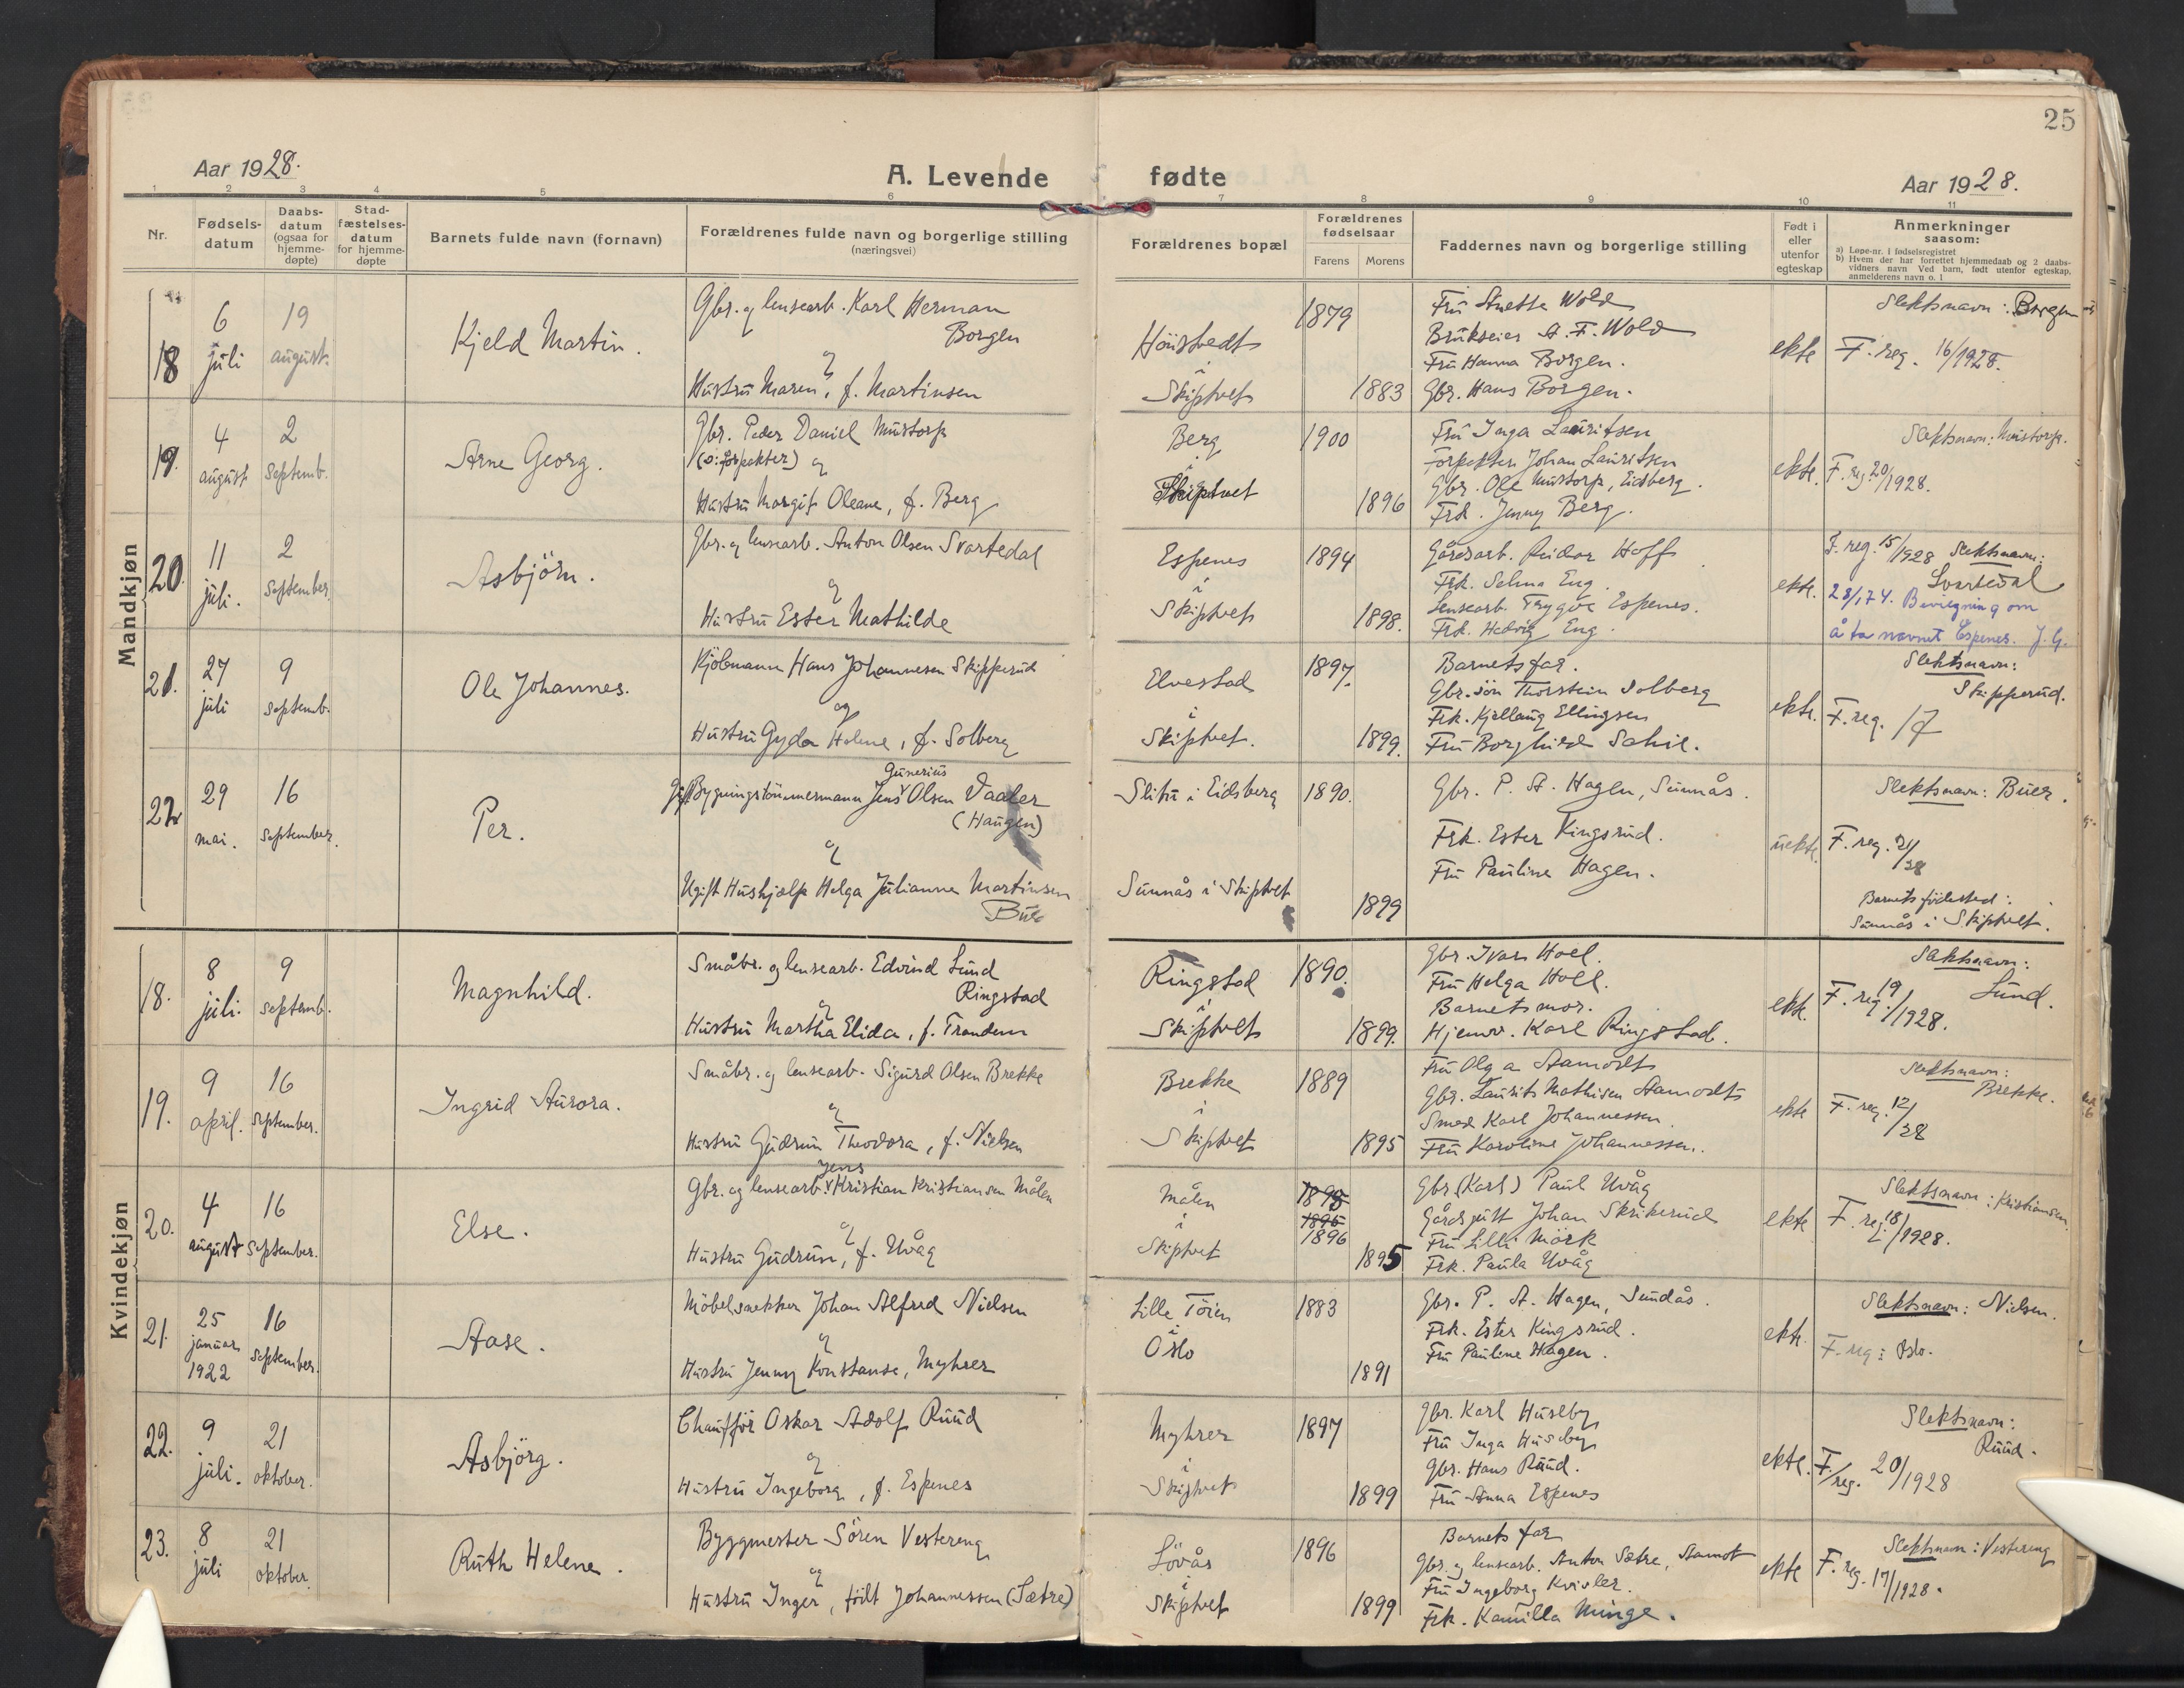 25
Aar 1928.
A. Levende fødte
Aar 1928.
1 2 3 4 5 6 7 8 9 10 11
Nr.
Fødsels-
datum
Daabs-
datum
(ogsaa for
hjemme-
døpte)
Stad-
fæstelses-
datum
for hjemme-
døpte
Barnets fulde navn (fornavn)
Forældrenes fulde navn og borgerlige stilling
(næringsvei)
Forældrenes bopæl
Forældrenes
fødselsaar
Farens Morens
Faddernes navn og borgerlige stilling
Født i
eller
utenfor
egteskap
Anmerkninger
saasom:
a) Løpe-nr. i fødselsregistret
b) Hvem der har forrettet hjemmedaab og 2 daabs-
vidners navn Ved barn, født utenfor egteskap,
anmelderens navn o. l.
Mandkjøn
18
6
juli
19
august.
Kjeld Martin.
Gbr. og lensearb. Karl Herman
Borgen
og
Hustru Maren, f. Martinsen
i
Skiptvet
1879
1883
Fru Anette Wold
Brukseier A. F. Wold
Fru Hanna Borgen.
Gbr. Hans Borgen.
ekte
Slektsnavn: Borgen
F. reg. 16/1928.
19.
4
august
2
Septemb.
Arne Georg.
Gbr. Peder Daniel Mustorp
(o: forpakter) og
Hustru Margit Oleane, f. Berg
Berg
i
Skiptvet
1900
1896
Fru Inga Lauritsen
Forpakter Johan Lauritsen
Gbr. Ole Mustorp, Eidsberg.
Frk. Jenny Berg.
ekte.
Slektsnavn: Mustorp.
F. reg. 20/1928.
20.
11
juli.
2
September.
Asbjörn.
Gbr. og lensearb. Anton Olsen Svartedal
og
Hustru Ester Mathilde
Espenes
i
Skiptvet
1894
1898.
Gårdsarb. Reidar Hoff
Frk. Selma Eng.
Lensearb. Trygve Espenes.
Frk. Hedvig Eng.
ekte.
F. reg. 15/1928 Slektsnavn:
Svartedal
28/1 74. Bevilgning om
å ta navnet Espenes. J. G.
21.
27
juli
9
Septemb.
Ole Johannes.
Kjöbmann Hans Johannesen Skipperud
og
Hustru Gyda Helene, f. Solberg
Elvestad
i
Skiptvet.
1897.
1899.
Barnets far.
Gbr. sön Thorstein Solberg
Frk. Kjellaug Ellingsen
Fru Borghild Sahil.
ekte.
Slektsnavn:
Skipperud.
F. reg. 17
22
29
mai.
16
September.
Per.
Gunerius
Gift Bygningstömmermann Jens Olsen Vaaler
(Haugen)
og
Ugift Hushjælp Helga Julianne Martinsen
Buer
Slitu i Eidsberg
Sunnås i Skiptvet
1890.
1899
Gbr. P. A. Hagen, Sunnås.
Frk. Ester Kingsrud.
Fru Pauline Hagen.
uekte.
Slektsnavn: Buer.
F. reg. 21/28
Barnets födested:
Sunnås i Skiptvet.
Kvindekjøn
18.
8
juli.
9
Septemb.
Magnhild.
Småbr. og lensearb. Edvind Lund
Ringstad
og
Hustru Martha Elida, f. Trandem
Ringstad
i
Skiptvet
1890.
1899.
Gbr. Ivar Hoel.
Fru Helga Hoel.
Barnets mor.
Hjemv. Karl Ringstad.
ekte.
Slektsnavn:
Lund.
F. reg. 19/1928.
19.
9
april.
16
September.
Ingrid Aurora.
Småbr. og lensearb. Sigurd Olsen Brekke
og
Hustru Gudrun Theodora, f. Nielsen
Brekke
i
Skiptvet
1889
1895
Fru Olga Aamodt
Gbr. Laurits Mathisen Aamodt
Smed Karl Johannessen.
Fru Karoline Johannessen.
ekte
Slektsnavn:
Brekke.
F. reg. 12/28
20.
4
august
16
September.
Else.
Jens
Gbr. og lensearb. Kristian Kristiansen Målen
og
Hustru Gudrun, f. Uvåg
Målen
i
Skiptvet
1895
1896
1895
Gbr. (Karl) Paul Uvåg
Gårdsgutt Johan Skrikerud
Fru Lilli Mörk
Frk. Paula Uvåg
ekte
Slektsnavn: Kristiansen.
F. reg. 18/1928.
21.
25
januar
1922
16
September.
Aase.
Möbelsnekker Johan Alfred Nielsen
og
Hustru Jenny Konstanse, Myhrer
Lille Töien
i
Oslo
1883
1891
Gbr. P. A. Hagen, Sundås.
Frk. Ester Kingsrud.
Fru Pauline Hagen.
ekte.
Slektsnavn: Nielsen.
F. reg: Oslo.
22.
9
juli.
21
oktober.
Asbjörg.
Chaufför Oskar Adolf Ruud
og
Hustru Ingeborg, f. Espenes
Myhrer
i
Skiptvet
1897
1899
Gbr. Karl Huseby
Fru Inga Huseby
Gbr. Hans Ruud.
Fru Anna Espenes
ekte.
Slektsnavn:
Ruud.
F. reg. 20/1928
23.
8
juli
21
oktober.
Ruth Helene.
Byggmester Sören Vestereng
og
Hustru Inger, födt Johannessen (Sætre)
Lövås
i
Skiptvet
1896
1899
Barnets far
Gbr. og lensearb. Anton Sætre, Aamot
Fru Ingeborg Kvisler.
Frk. Kamilla Minge.
ekte
Slektsnavn: Vestereng
F. reg. 17/1928.